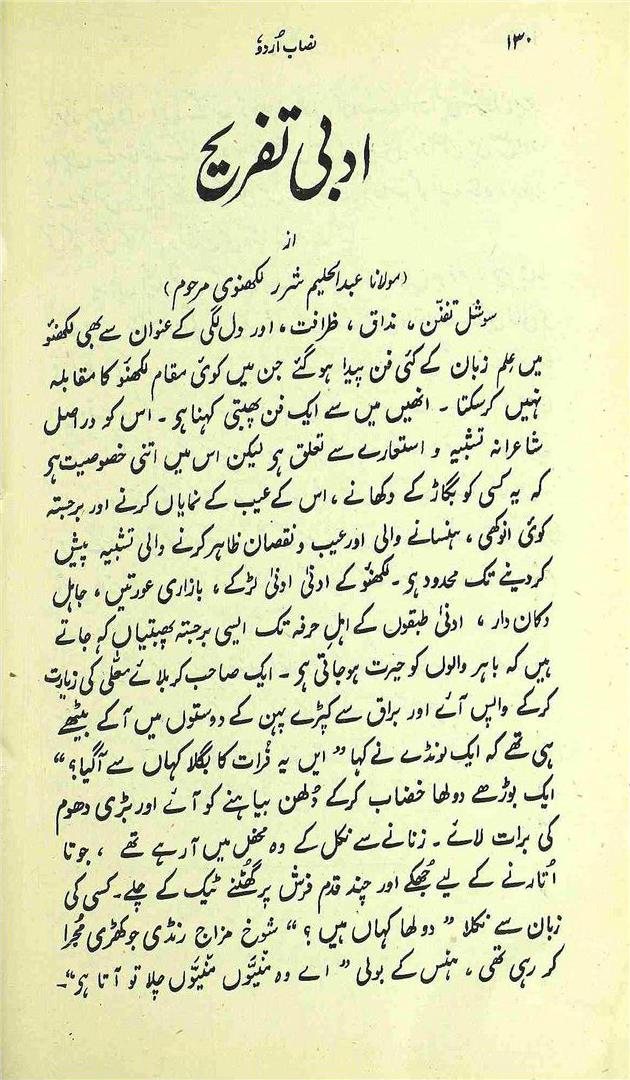 ۱۳۰
نصاب اُردو
ادبی تفریح
از
(مولانا عبدالحلیم شرر لکھنوی مرحوم)
سوشل تفنّن ، مذاق ، ظرافت ، اور دل لگی کے عنوان سے بھی لکھنؤ
میں علمِ زبان کے کئی فن پیدا ہوگئے جن میں کوئی مقام لکھنؤ کا مقابلہ
نہیں کرسکتا ۔ انھیں میں سے ایک فن پھبتی کہنا ہو ۔ اس کو دراصل
شاعرانہ تشبیہ و استعارے سے تعلق ہو لیکن اس میں اتنی خصوصیت ہو
کہ یہ کسی کو بگاڑ کے دکھانے ، اس کے عیب کے نمایاں کرنے اور برجستہ
کوئی انوکھی ، ہنسانے والی اور عیب و نقصان ظاہر کرنے والی تشبیہ پیش
کردینے تک محدود ہو ۔ لکھنؤ کے ادنیٰ ادنیٰ لڑکے ، بازاری عورتیں ، جاہل
دکان دار ، ادنیٰ طبقوں کے اہلِ حرفہ تک ایسی برجستہ پھبتیاں کہ جاتے
ہیں کہ باہر والوں کو حیرت ہوجاتی ہو ۔ ایک صاحب کربلائے معلّی کی زیارت
کرکے واپس آئے اور براق سے کپڑے پہن کے دوستوں میں آکے بیٹھے
ہی تھے کہ ایک لونڈے نے کہا ” ایں یہ فُرات کا بگلا کہاں سے آگیا ؟ “
ایک بوڑھے دولھا خضاب کرکے دُلھن بیاہنے کو آئے اور بڑی دھوم
کی برات لائے ۔ زنانے سے نکل کے وہ محفل میں آرہے تھے ، جوتا
اُتارنے کے لیے جُھکے اور چند قدم فرش پر گھُٹنے ٹیک کے چلے ۔ کسی کی
زبان سے نکلا ” دولھا کہاں ہیں ؟ “ شوخ مزاج رنڈی جو کھڑی مُجرا
کر رہی تھی ، ہنس کے بولی ” اے وہ مَیّوں مَیّوں چلا تو آتا ہو “ ۔